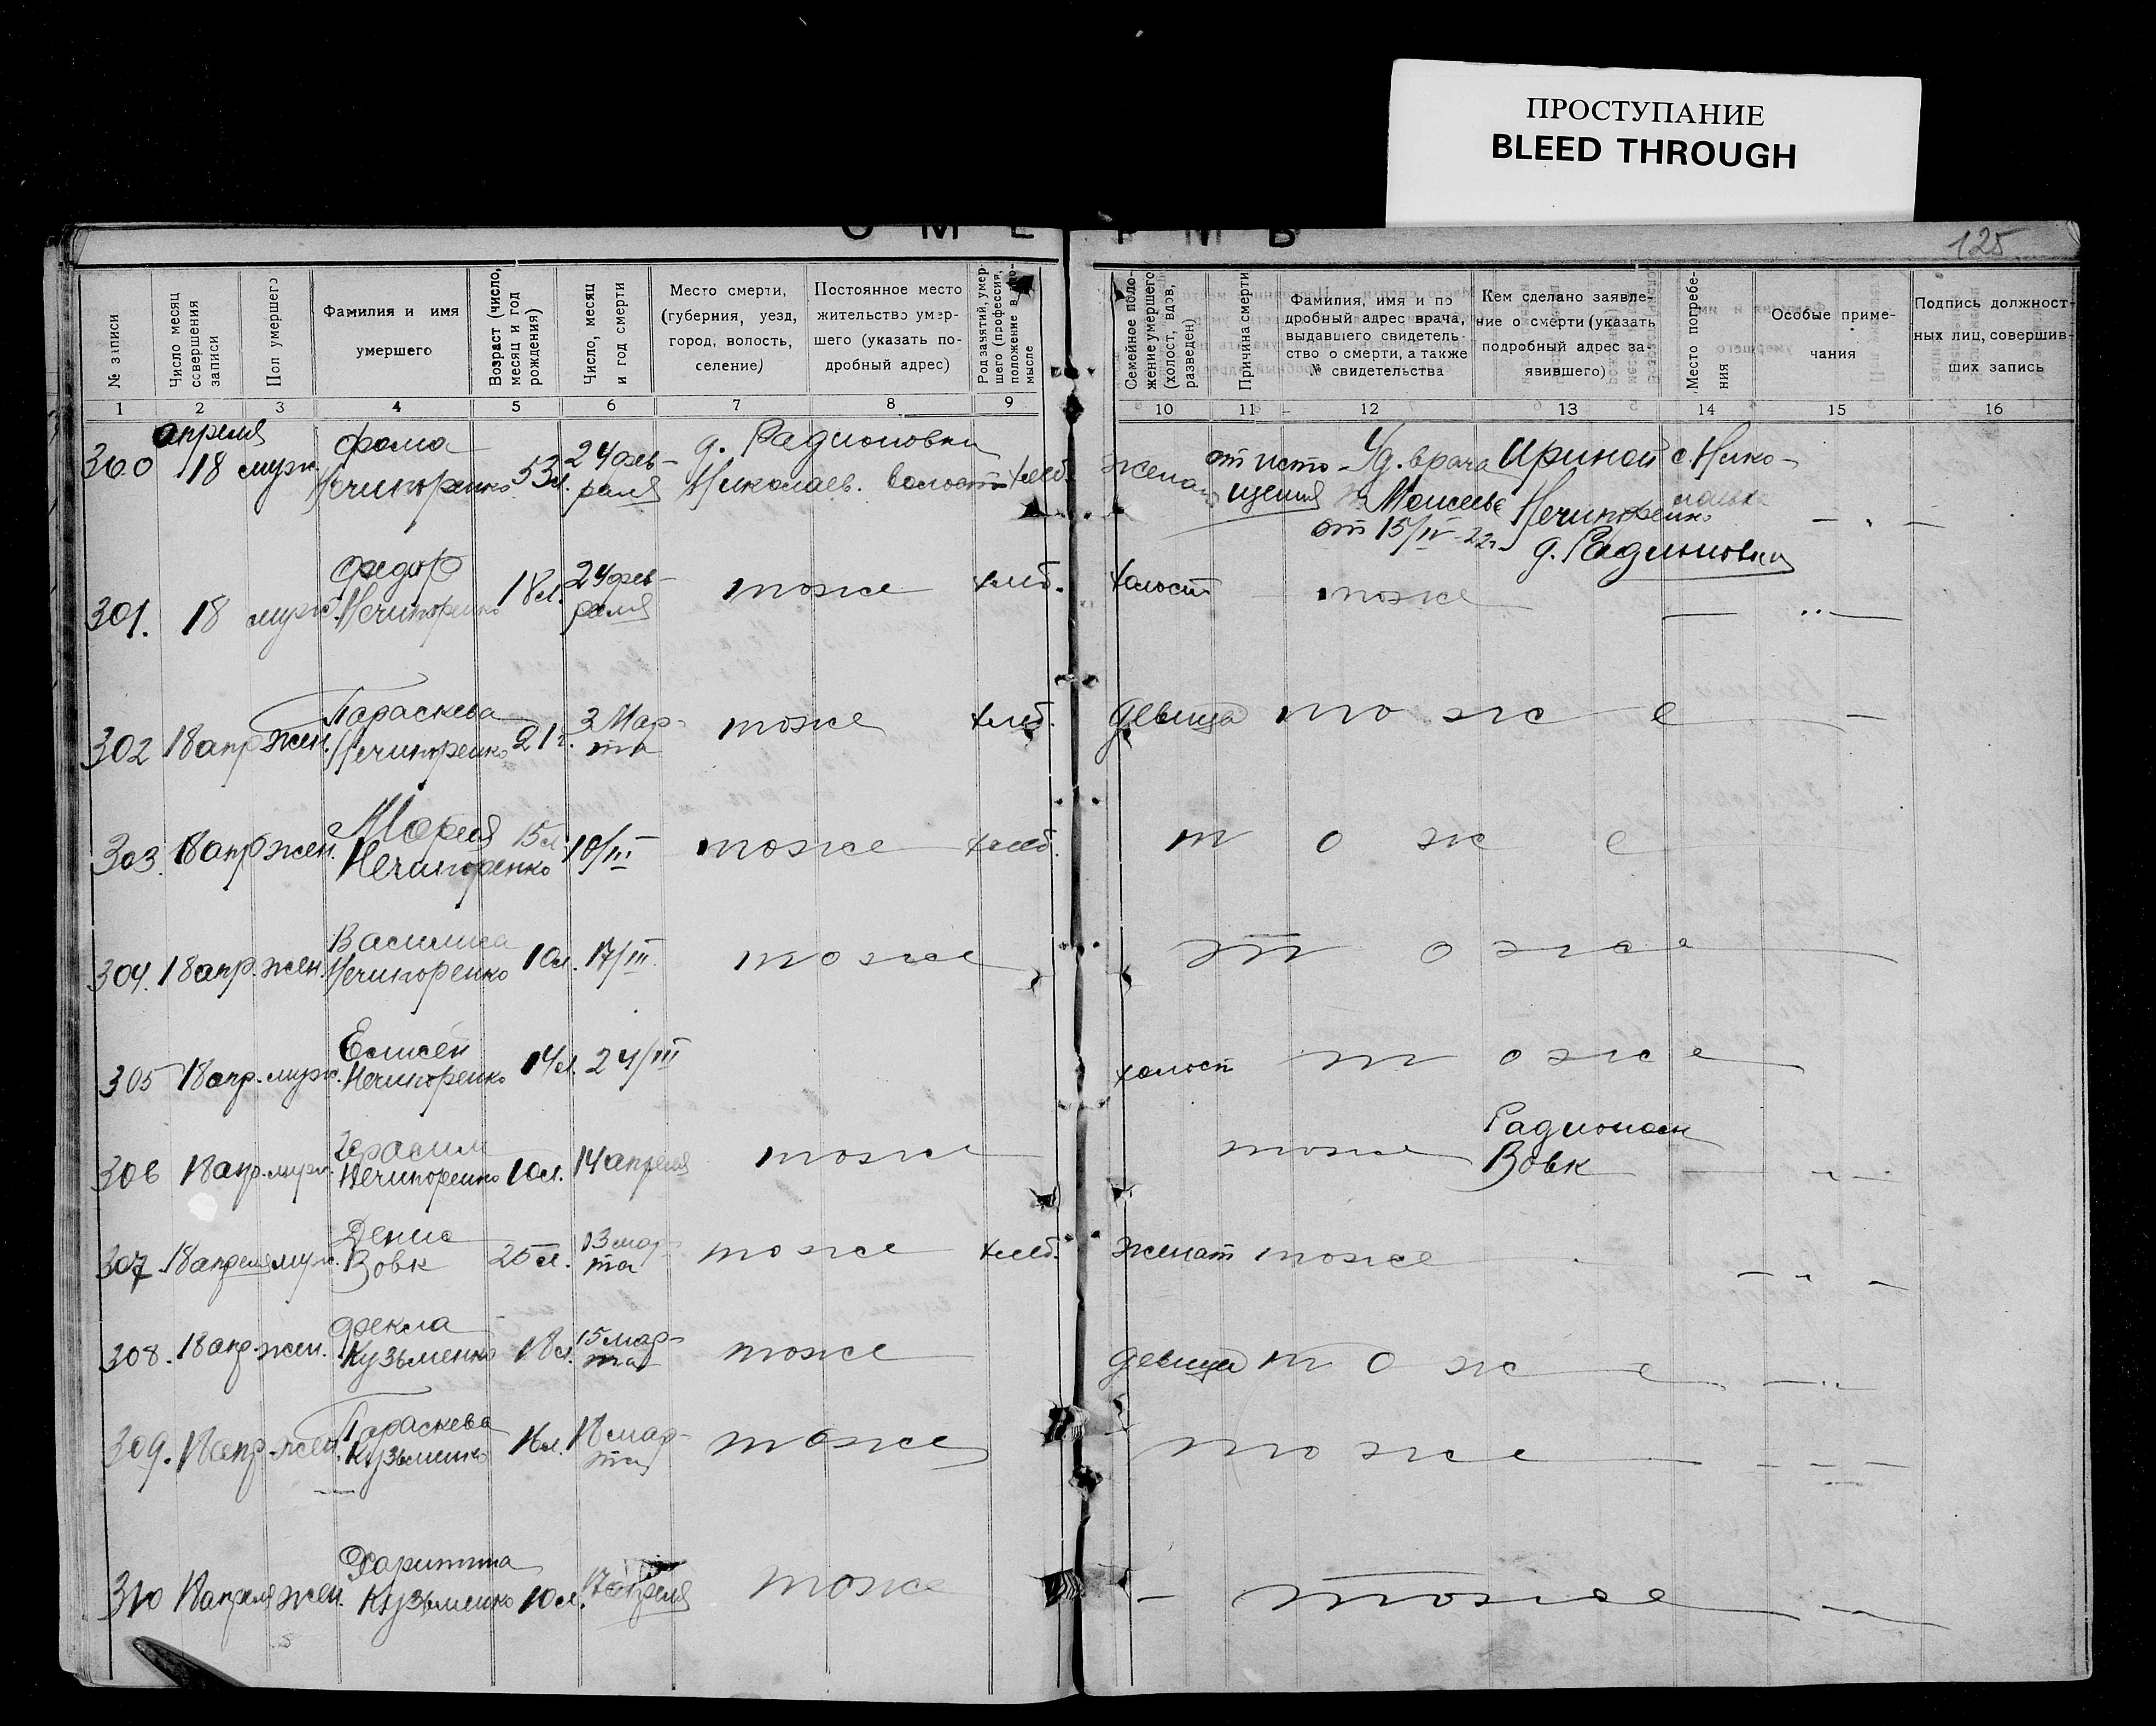 ПРОСТУПАНИЕ
BLEED THROUGH
125
№ записи
Число месяц совершения записи
Пол умершего
Фамилия и имя умершего
Возраст (число, месяц и год рождения)
Число, месяц и год смерти
Место смерти, (губерния, уезд, город, волость, селение)
Постоянное место жительство умершего (указать подробный адрес)
Род занятий, умершего (профессия, положение в промысле
Семейное положение умершего (холост, вдов, разведен)
Причина смерти
Фамилия, имя и подробный адрес врача, выдавшего свидетельство о смерти, а также № свидетельства
Кем сделано заявление о смерти (указать подробный адрес заявившего)
Место погребения
Особые примечания
Подпись должностных лиц, совершивших запись
1 2 3 4 5 6 7 8 9 10 11 12 13 14 15 16
апреля
300 18 муж. Фома Нечипоренко 53л. 24 февраля д. Радионовки Николаев. волости хлеб. женат от истощения Уд. врача Моисеева от 15/IV-22г. Ириной Нечипоренко с. Нико- д. Радионовки
301. 18 муж. Федор Нечипоренко 18л. 24 февраля тоже хлеб. холост тоже
302 18 апр жен. Параскева Нечипоренко 21г. 3 Марта тоже хлеб. девица тоже
303. 18 апр жен. Мария Нечипоренко 15л. 10/III тоже хлеб. тоже
304. 18 апр. жен. Василиса Нечипоренко 10л. 17/III тоже тоже
305 18 апр. муж. Елисей Нечипоренко 14л. 24/III холост тоже
306 18 апр. муж. Герасим Нечипоренко 10л. 14 апреля тоже тоже Радионом Вовк
307. 18 апреля муж. Денис Вовк 25л. 13 марта тоже хлеб. женат тоже
308. 18 апр. жен. Фекла Кузьменко 18л. 15 марта тоже девица тоже
309. 18 апр. жен. Параскева Кузьменко 16л. 18 марта тоже тоже
310 18 апреля жен. Харитина Кузьменко 10л. 17 апреля тоже - тоже